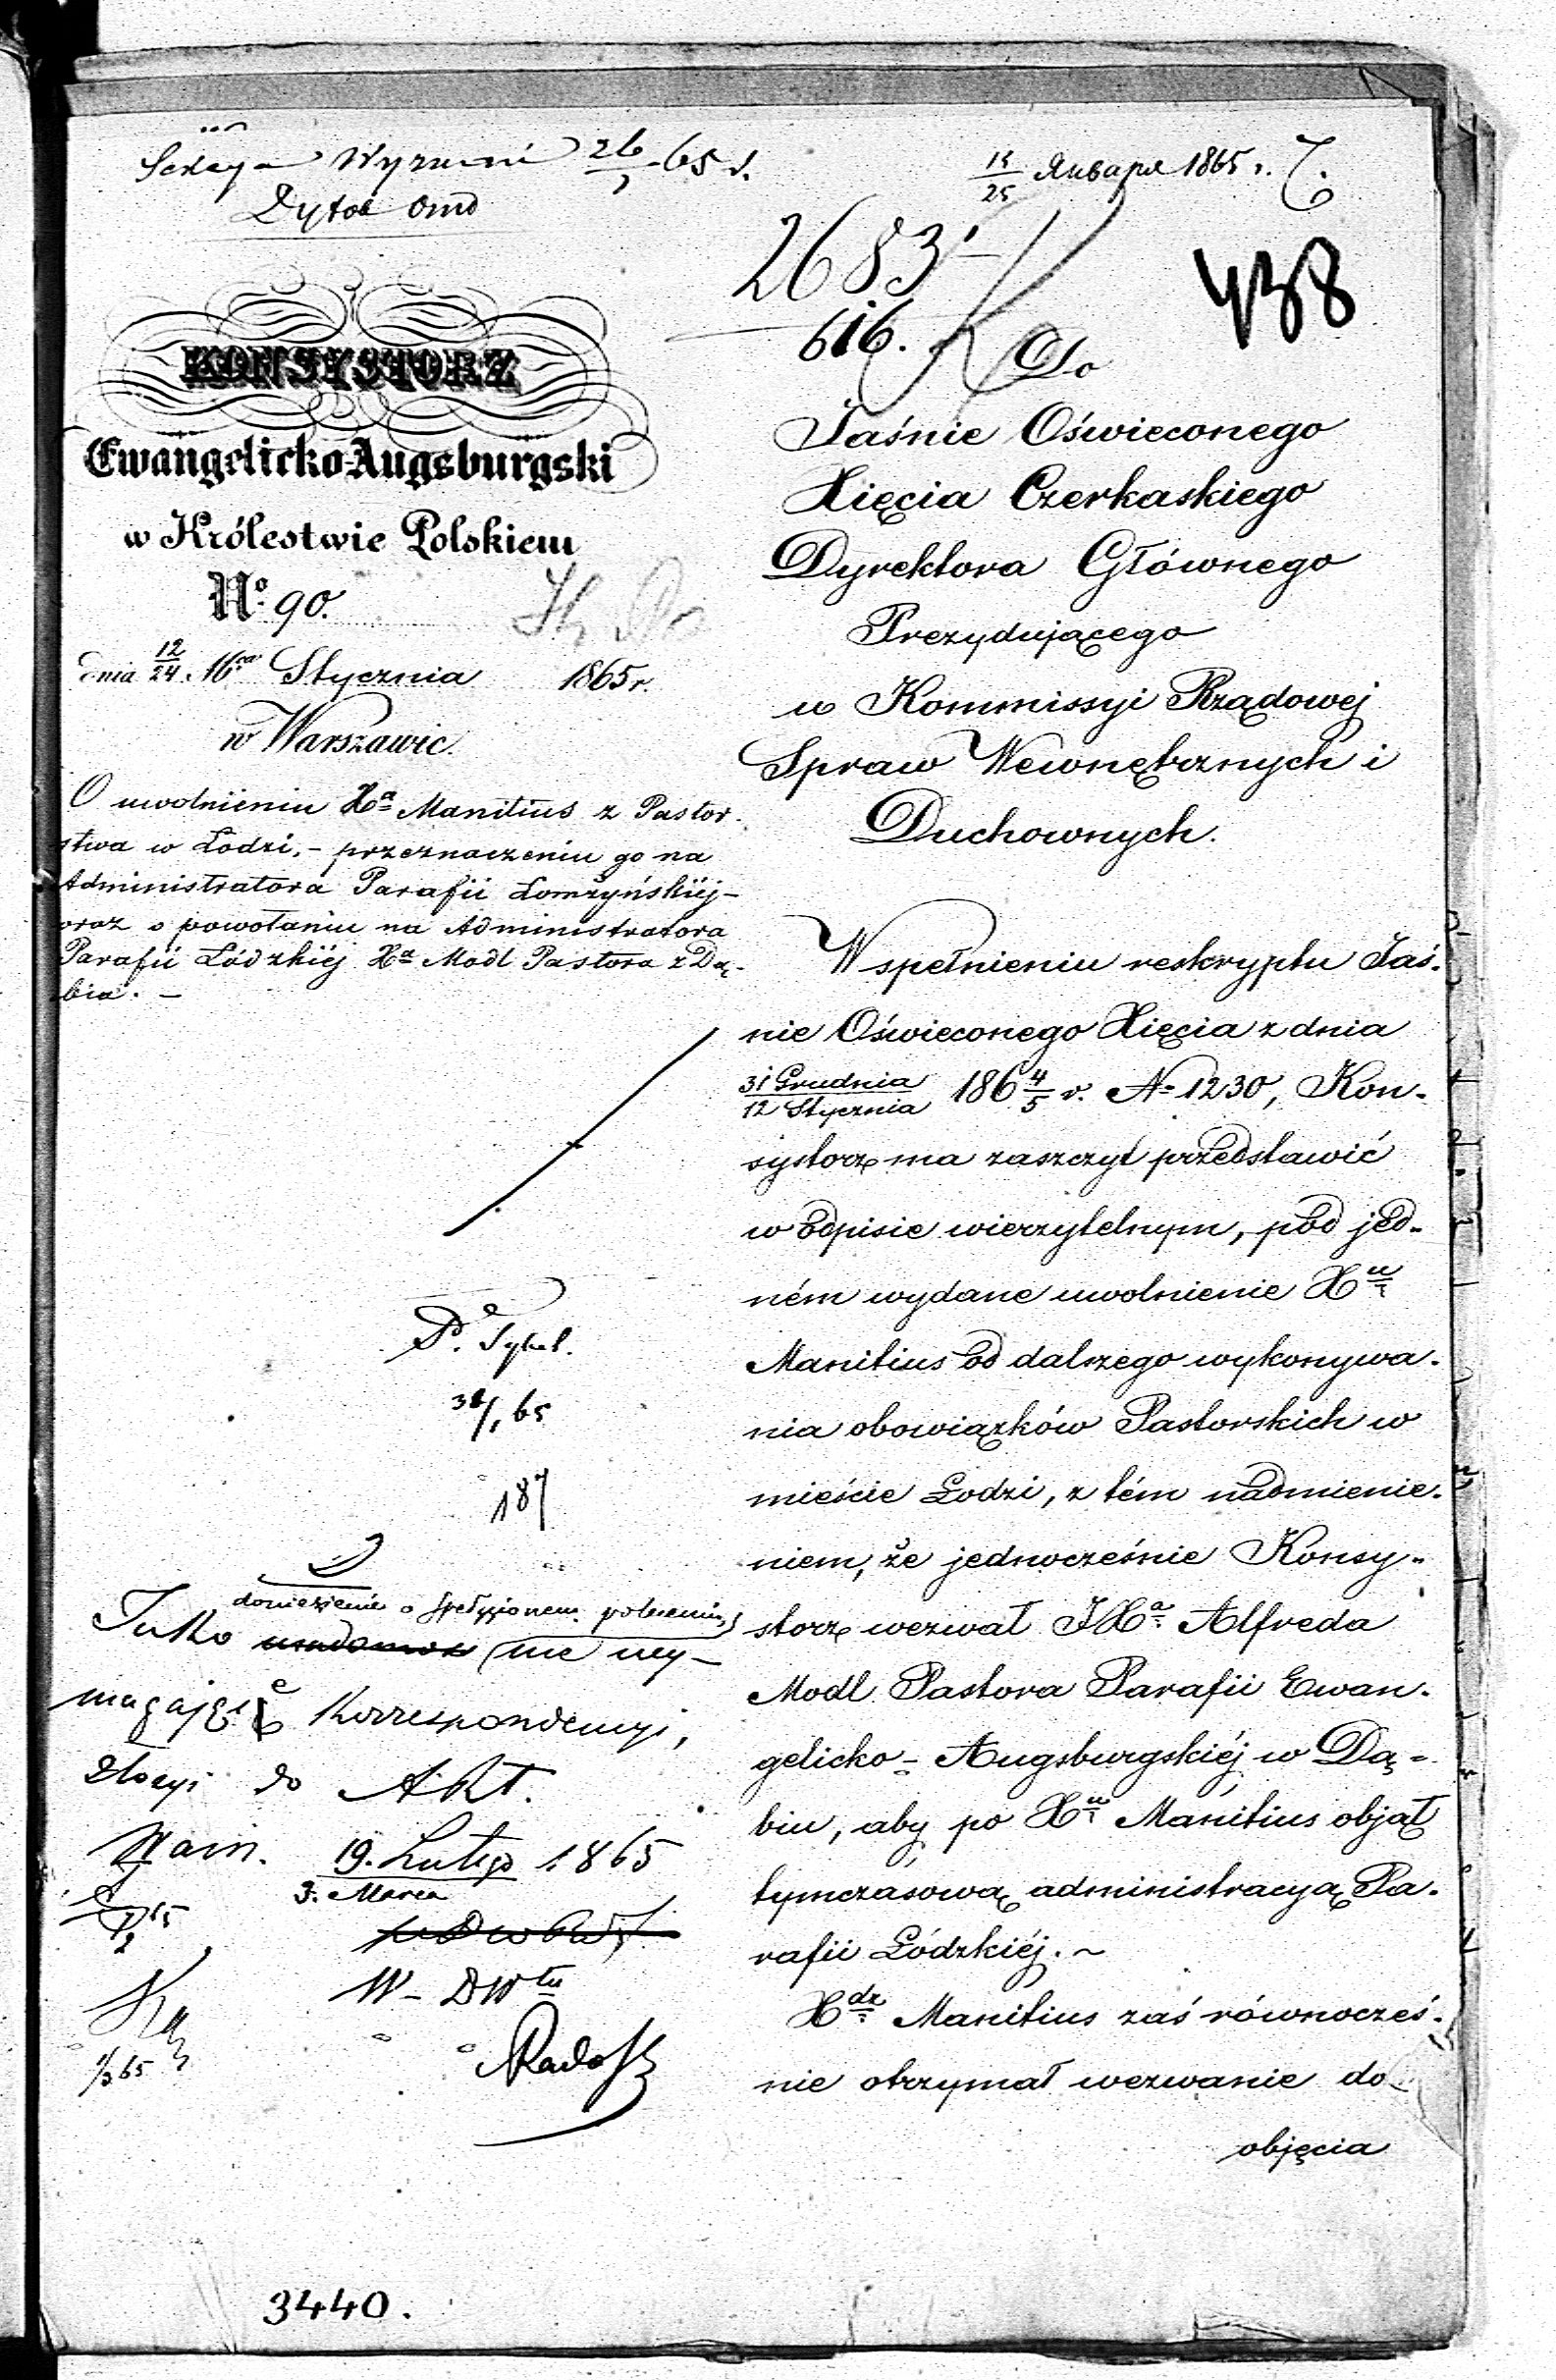 Sekcya Wyznań 26/1 65 r.
13/25 Января 1865 г.
2683
616.
438
KONSYSTORZ
Ewangelicko-Augsburgski
w Królestwie Polskiem
No. 90.
dnia 12/24 Stycznia 1865 r.
w Warszawie.
O uwolnieniu Xa Manitius z Pastor-
stwa w Łodzi, – przeznaczeniu go na
Administratora Parafii Łomżyńskiéj –
oraz o powołaniu na Administratora
Parafii Łódzkiéj Xa Modl Pastora z Dą-
bia. –
Do
Jaśnie Oświeconego
Xięcia Czerkaskiego
Dyrektora Głównego
Prezydującego
w Kommissyi Rządowej
Spraw Wewnętrznych i
Duchownych.
W spełnieniu reskryptu Jaś-
nie Oświeconego Xięcia z dnia
31 Grudnia/12 Stycznia 186 4/5 r. No 1230, Kon-
systorz ma zaszczyt przedstawić
w odpisie wierzytelnym, pod jed-
ném wydane uwolnienie Xu
Manitius od dalszego wykonywa-
nia obowiązków Pastorskich w
mieście Łodzi, z tém nadmienie-
niem, że jednocześnie Konsy-
storz wezwał JXa Alfreda
Modl Pastora Parafii Ewan-
gelicko-Augsburgskiéj w Dą-
biu, aby po Xu Manitius objął
tymczasową administracyą Pa-
rafii Łódzkiéj. ~
Xdz Manitius zaś równocześ-
nie otrzymał wezwanie do
objęcia
187
doniesienie o spełnionem poleceniu,
Jako nie wy-
magające Korrespondencyi,
złożyć do Akt.
19. Lutego 1865
3. Marca
3440.